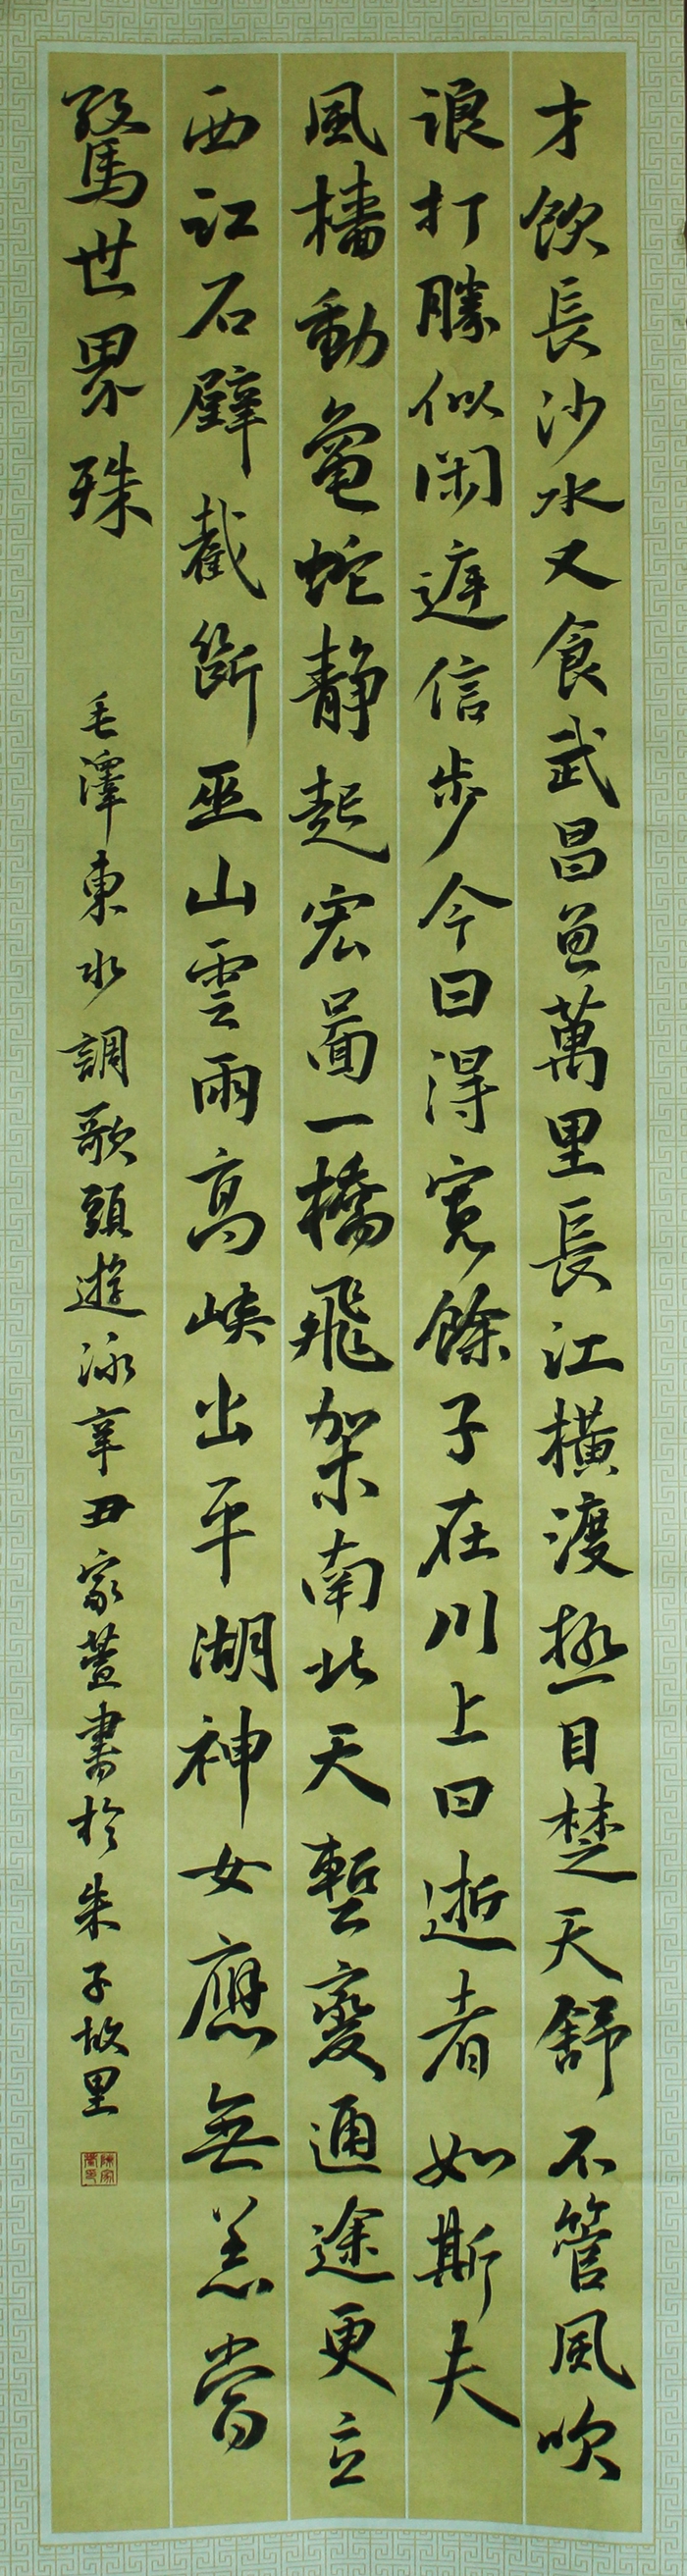 才飲長沙水又食武昌魚萬里長江橫渡極目楚天舒不管風吹
浪打勝似閑庭信步今日得寬餘子在川上曰逝者如斯夫
風檣動龜蛇靜起宏圖一橋飛架南北天塹變通途更立
西江石壁截斷巫山雲雨高峽出平湖神女應無恙當
驚世界殊
毛澤東水調歌頭遊泳辛丑家萱書於朱子故里